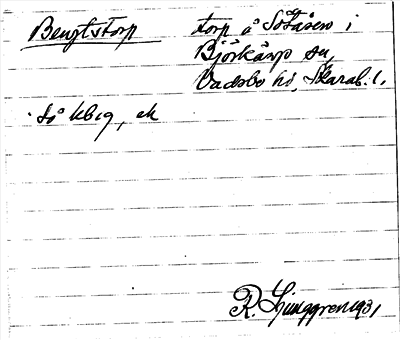 Bengtstorp torp å Sötåsen i
Björkängs sn,
Vadsbo hd, Skarab. l.
Så kbg, ek
R. Ljunggren 1931